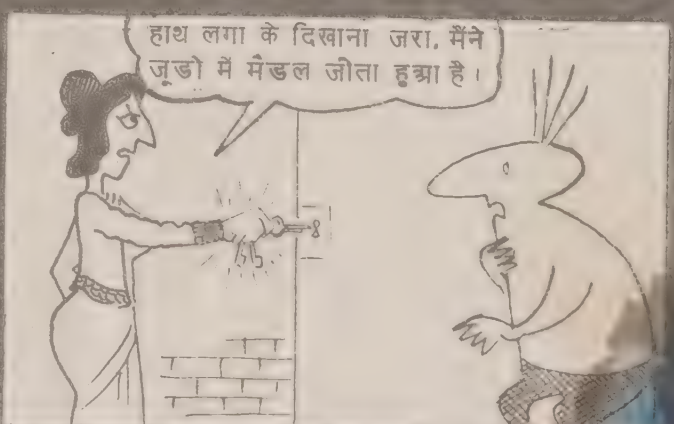 हाथ लगा के दिखाना जरा. मैंने
जूडो में मैडल जीता हुआ है।